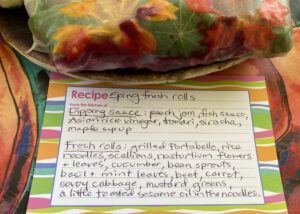 Recipe Sping fresh rolls
From the Kitchen of
Dipping sauce: peach jam, fish sauce,
Asian rice vinegar, tamari, siracha,
maple syrup
Fresh rolls: grilled Portabello, rice
noodles, scallions, nasturtium flowers
+ leaves, cucumber, bean sprouts,
basil + mint leaves, beet, carrot,
savoy cabbage, mustard greens,
a little toasted sesame oil in the noodles.